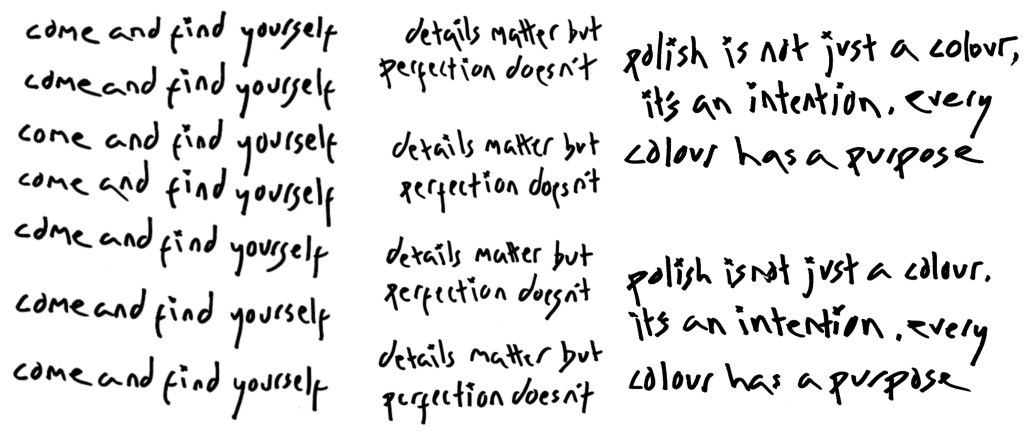 come and find yourself
come and find yourself
come and find yourself
come and find yourself
come and find yourself
come and find yourself
come and find yourself
details matter but
perfection doesn't
details matter but
perfection doesn't
details matter but
perfection doesn't
details matter but
perfection doesn't
polish is not just a colour,
it's an intention. every
colour has a purpose
polish is not just a colour.
it's an intention. every
colour has a purpose